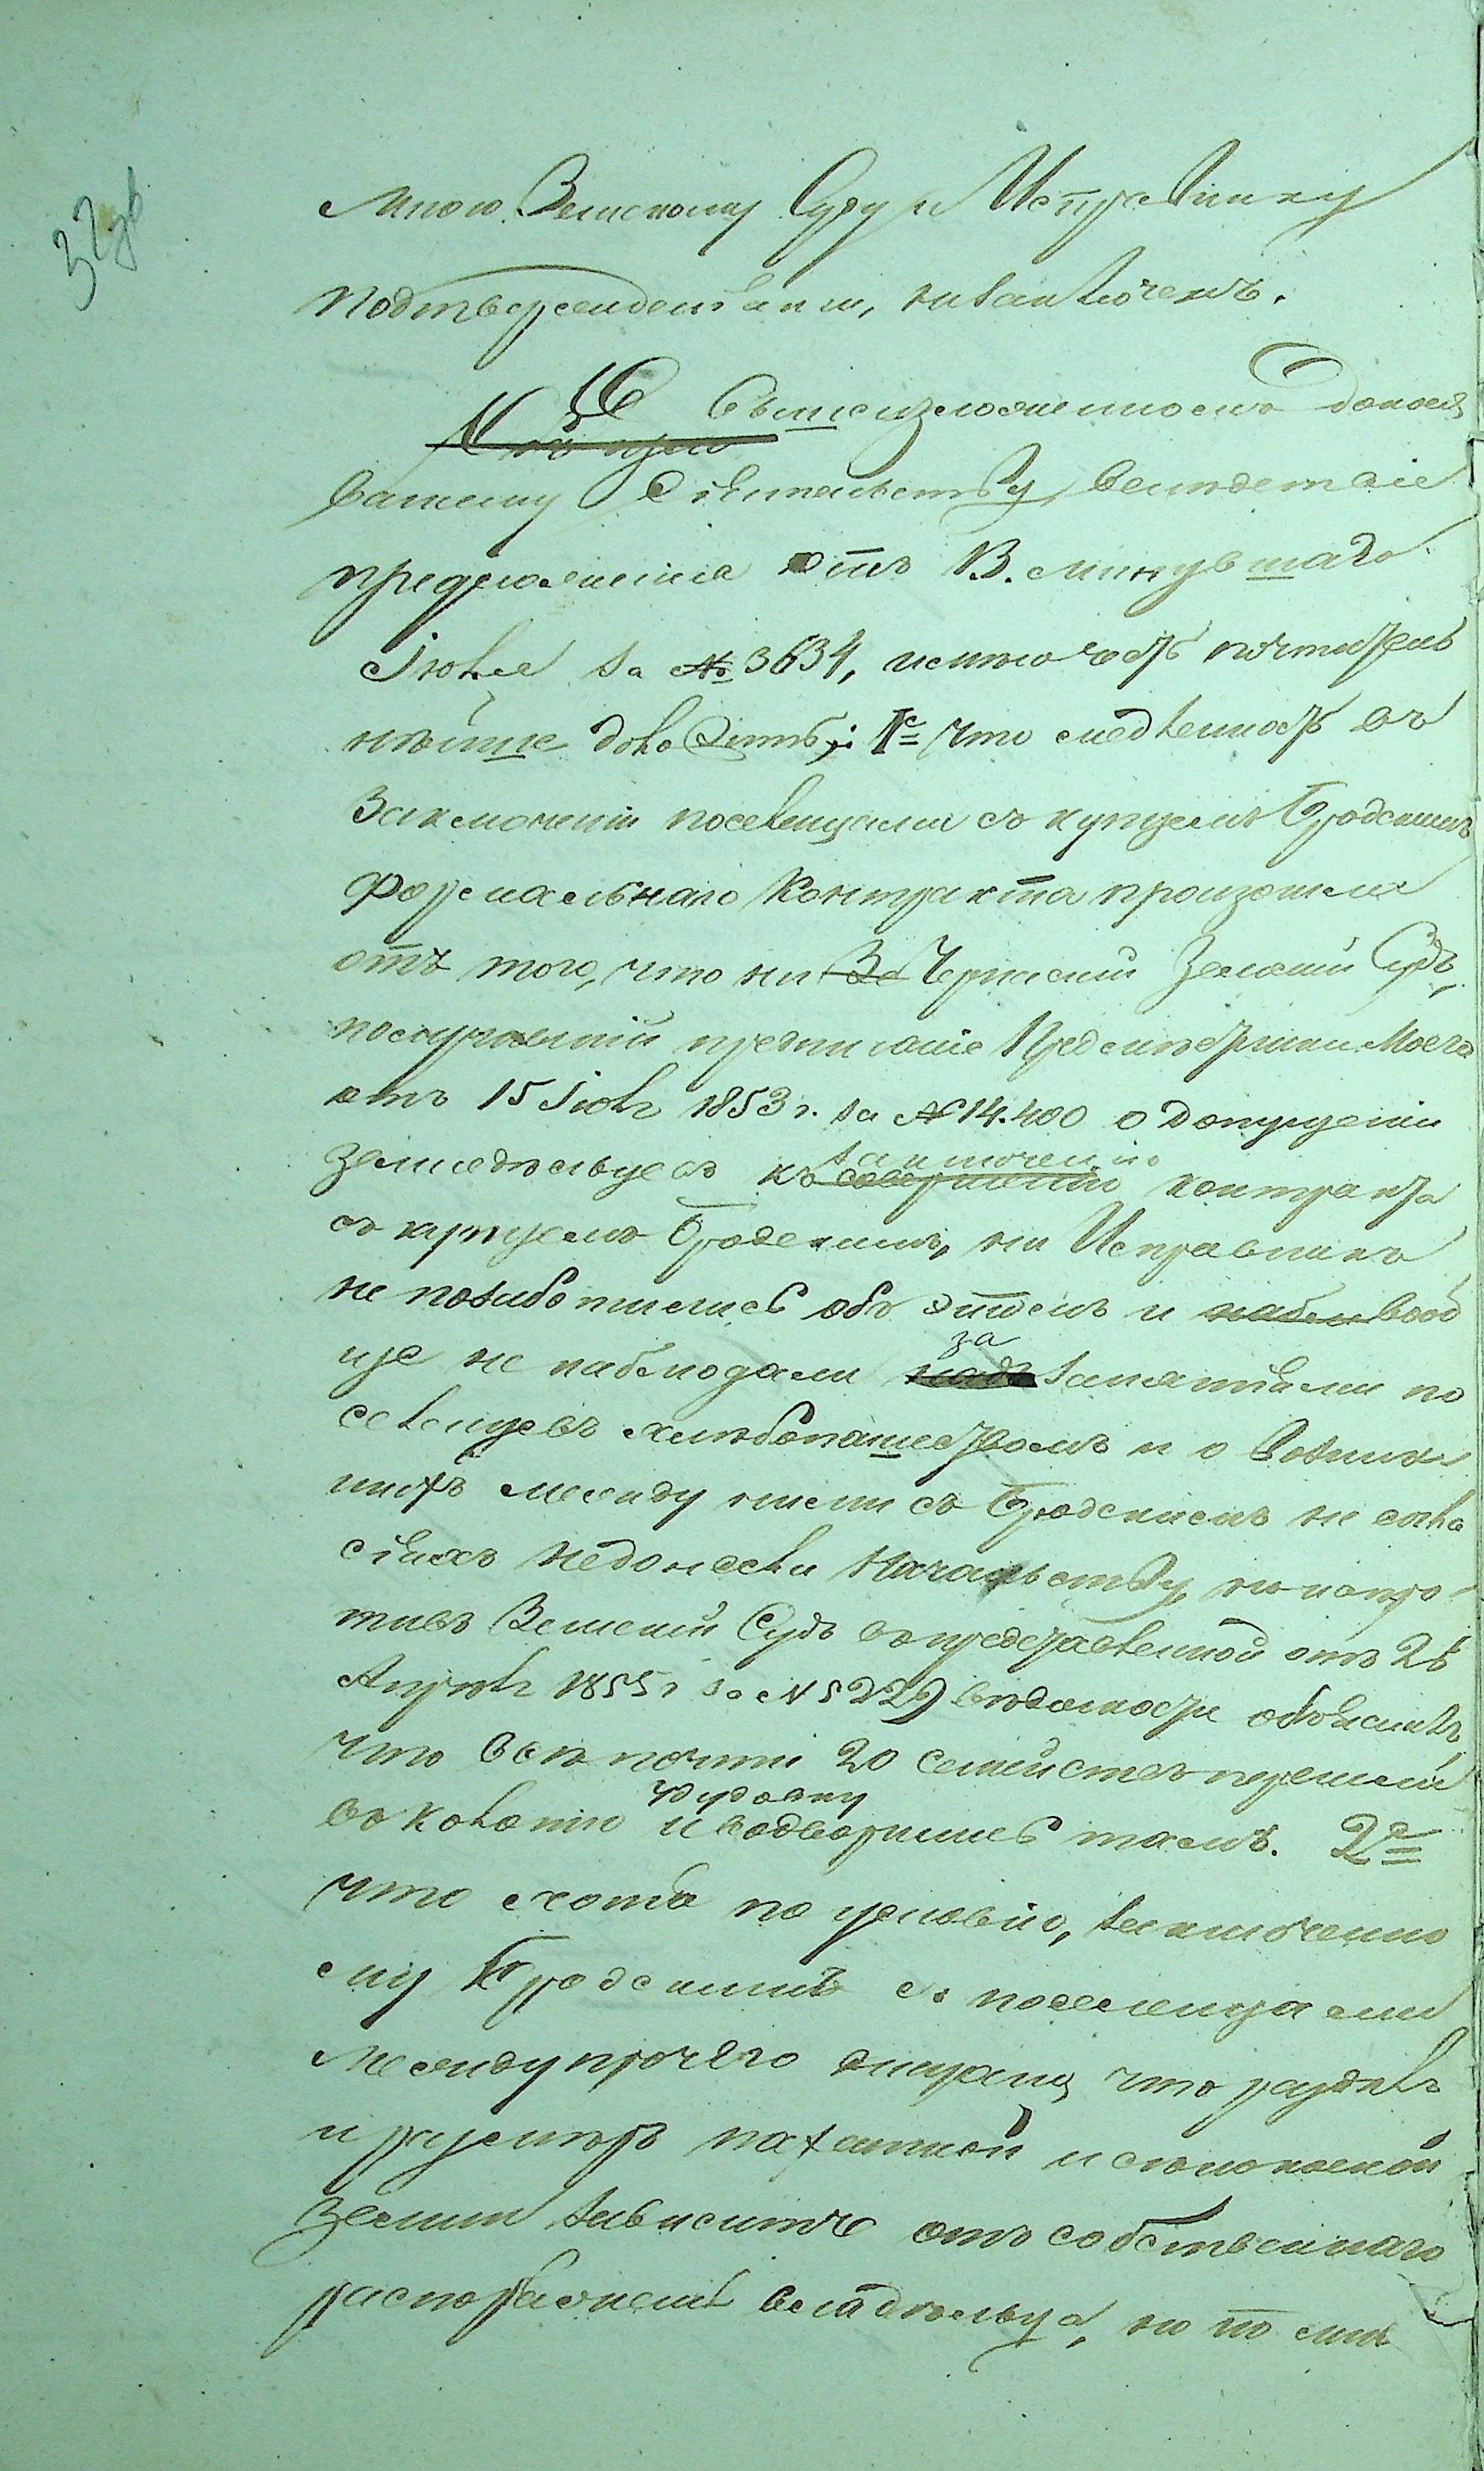 32 об
мною Земскому Суду и Исправнику
подтверждениями, не заключенъ.
О вышеизложенномъ донося
Вашему Сіятельству, вслѣдствіе
предложенія отъ 13. минувшаго
Іюля за № 3634, имѣю честь почтитель
нѣйше доложить: 1е что медленность въ
заключеніи поселенцами съ купцемъ Бродскимъ
формальнаго контракта произошла
отъ того, что ни Черкаскій Земскій Судъ,
получившій предписаніе Предмѣстника Моего
отъ 15 Іюля 1853 г. за № 14.400 о допущеніи
земледѣльцевъ къ заключенію контракта
съ купцемъ Бродскимъ, ни Исправникъ
не позаботились объ этомъ и вооб
ще не наблюдали за занятіями по
селенцевъ хлѣбопашествомъ и о возник
шихъ между ними съ Бродскимъ не согла
сіяхъ недонесли Начальству, но напро-
тивъ Земскій Судъ въ представленной отъ 26
Апрѣля 1855 г за № 5229 вѣдомости объяснилъ,
что всѣ почти 20 семействъ перешли
въ колонію и водворились тамъ. 2е
что хотя по условію, заключенно
му Бродскимъ съ поселенцами
между прочего выражено, что раздѣлъ
и размѣръ пахатной и сѣнокосной
земли зависитъ отъ собственнаго
распоряженія владѣльца, но